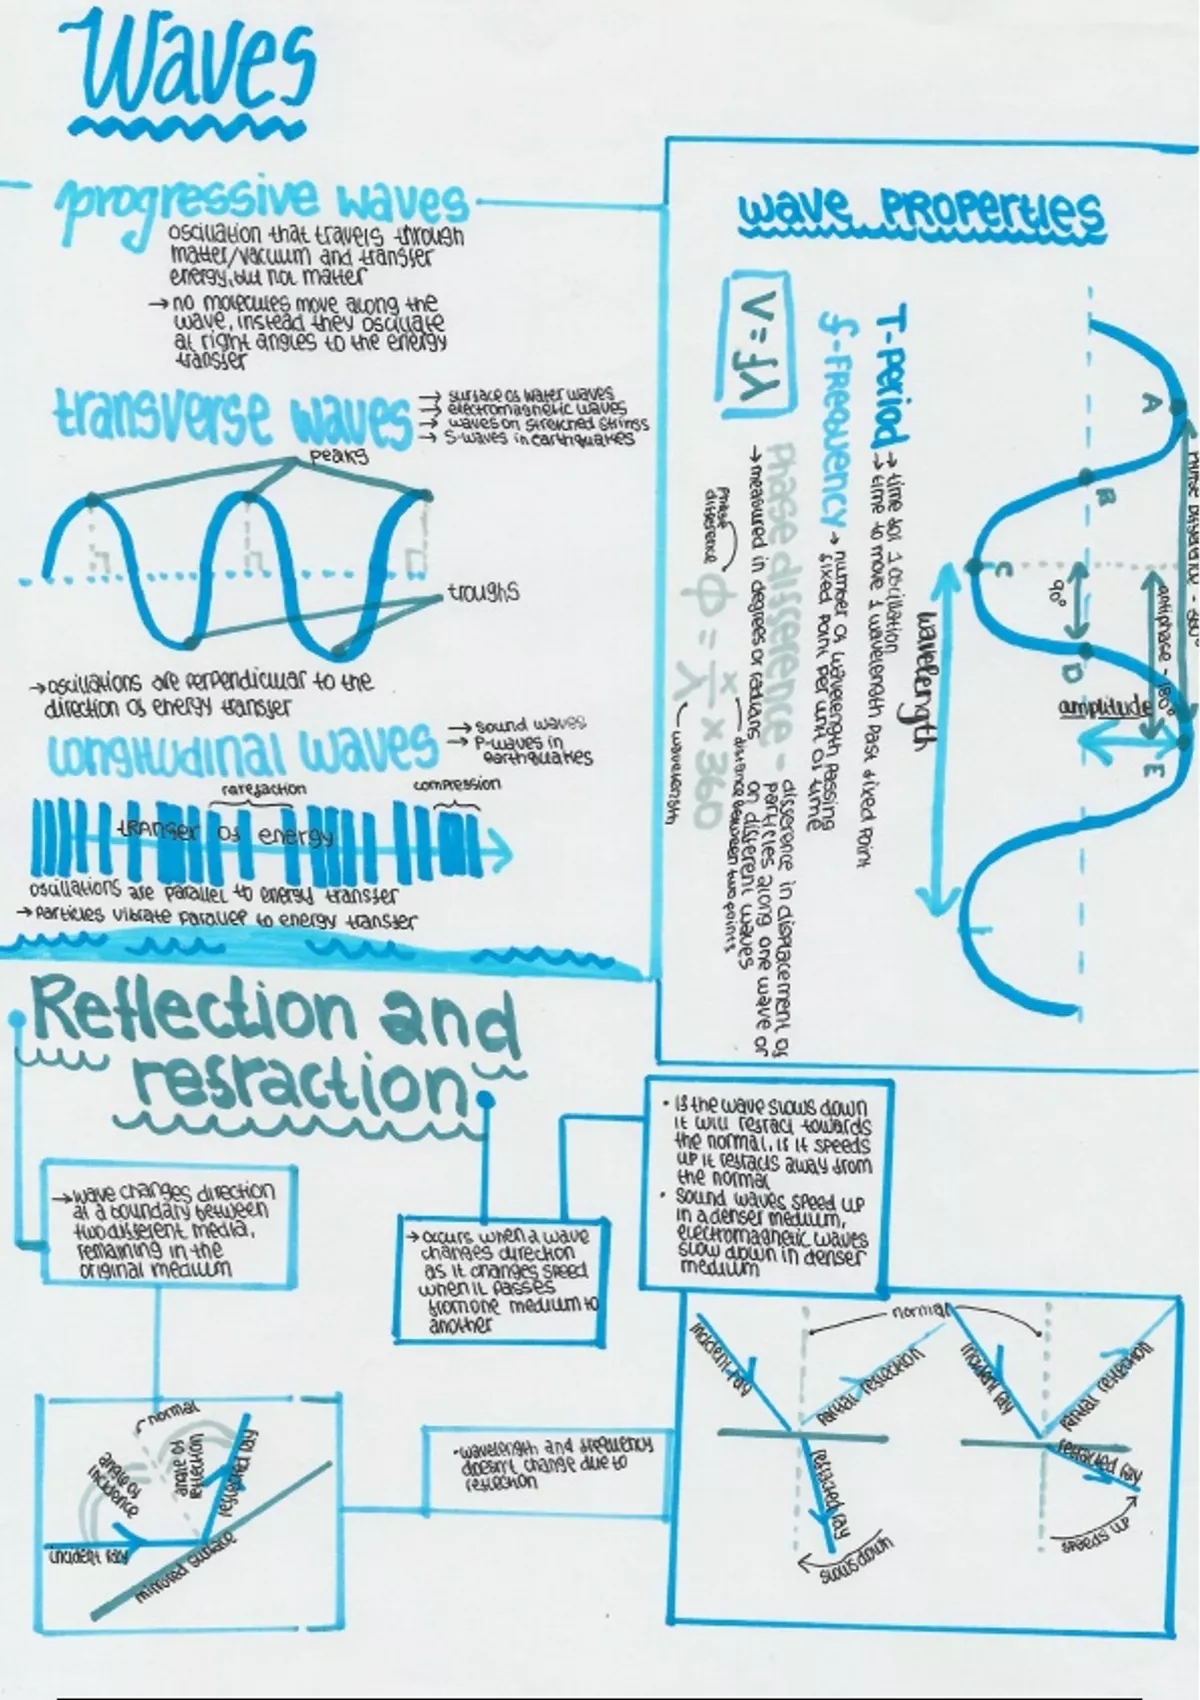 Waves
progressive waves
oscillation that travels through
matter/vacuum and transfer
energy, but not matter
→ no molecules move along the
wave, instead they oscillate
at right angles to the energy
transfer
transverse waves
→ surface of water waves
→ electromagnetic waves
→ waves on stretched strings
→ S-waves in earthquakes
peaks
troughs
→ oscillations are perpendicular to the
direction of energy transfer
longitudinal waves
→ sound waves
→ P-waves in
earthquakes
rarefaction
compression
transfer of energy
oscillations are parallel to energy transfer
→ particles vibrate parallel to energy transfer
wave properties
A
B
C
D
E
90°
antiphase - 180°
amplitude
wavelength
T-period → time for 1 oscillation
→ time to move 1 wavelength past fixed point
f-frequency → number of wavelength passing
fixed point per unit of time
v = fλ
phase difference - difference in displacement of
particles along one wave or
on different waves
→ measured in degrees or radians
phase
difference
ϕ = x/λ × 360
distance between two points
wavelength
Reflection and
refraction
→ wave changes direction
at a boundary between
two different media,
remaining in the
original medium
→ occurs when a wave
changes direction
as it changes speed
when it passes
from one medium to
another
• if the wave slows down
it will refract towards
the normal, if it speeds
up it refracts away from
the normal
• sound waves speed up
in a denser medium,
electromagnetic waves
slow down in denser
medium
normal
angle of
incidence
angle of
reflection
reflected ray
incident ray
mirrored surface
•wavelength and frequency
doesn't change due to
reflection
normal
incident ray
partial reflection
refracted ray
slows down
incident ray
partial reflection
refracted ray
speeds up